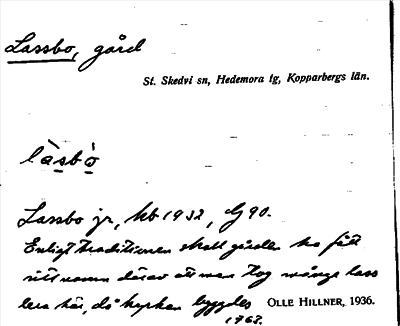 Lassbo, gård
St. Skedvi sn, Hedemora tg, Kopparbergs län.
làsbò
Lassbo jr, hb 1932, G 90.
Enligt traditionen skall gården ha fått
sitt namn därav att man tog många lass
lera här, då kyrkan byggdes OLLE HILLNER, 1936.
1763.